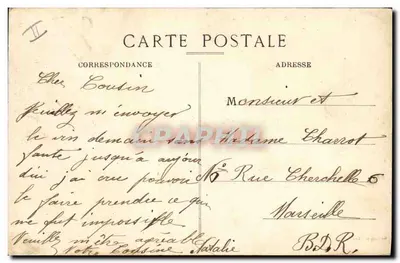 II
CARTE POSTALE
CORRESPONDANCE
ADRESSE
Cher Cousin
Veuillez m'envoyer
le vin demain sans
faute jusqu'à aujour
dui j'ai cru pouvoir
le faire prendre ce qui
me fut impossible
Veuillez m'être agréable
Votre Cousine Natalie
Monsieur et
Madame Charrot
No Rue Cherchelle 6
Marseille
B.D.R.